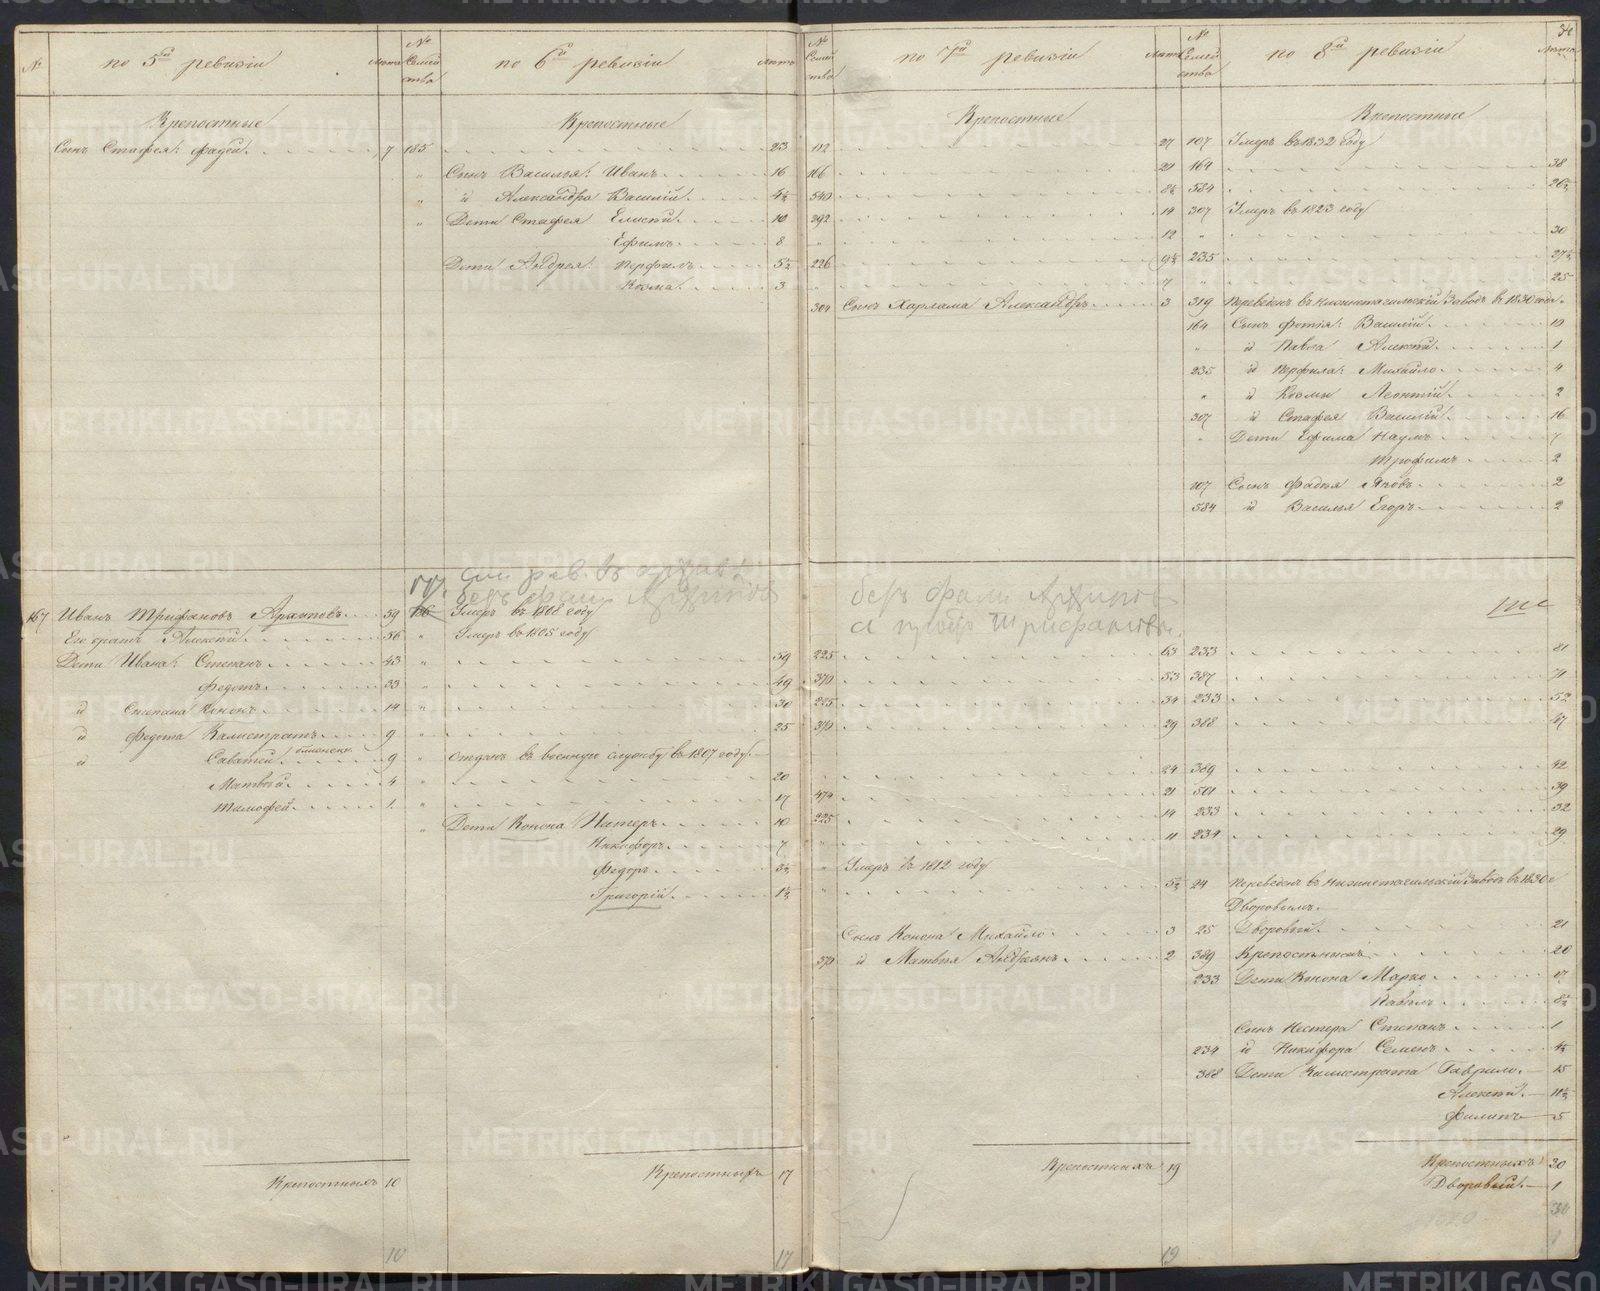 № по 5й ревизiи лѣта
№ Семей ства по 6й ревизiи лѣта
№ Семей ства по 7й ревизiи лѣта
№ Семей ства по 8й ревизiи лѣта
Крепостные
Сынъ Стафея: Фадей 7
Крепостные
185 23
" Сынъ Василья: Иванъ 16
" й Александра Василiй 4½
" Дети Стафея Елисей 10
Ефимъ 8
Дети Андрея: Перфилъ 5½
Козма 3
Крепостные
112 27
166 21
540 8½
292 14
" 12
226 9½
" 7
304 Сынъ Харлама Александръ 3
Крепостные
107 Умеръ въ 1832 году
164 38
584 26½
307 Умеръ въ 1823 году
" 30
235 27½
" 25
319 Переведенъ въ Нижнетагильскiй Заводъ въ 1830 году.
164 Сынъ Фотiя: Василiй 10
" й Павла Алексей 1
235 й Перфила: Михайло 4
" й Козмы Леонтiй 2
307 й Стафея Василiй 16
" Дети Ефима Наумъ 7
Трофимъ 2
107 Сынъ Фадея Яковъ 2
584 й Василья Егоръ 2
167 Иванъ Трифановъ Архиповъ 59
Его братъ Алексей 56
Дети Ивана: Степанъ 43
Федотъ 33
й Степана Кононъ 14
й Федота Калистратъ 9
й Саватей 9
Матвей 4
Тимофей 1
Умеръ въ 1808 году
" Умеръ въ 1805 году
" 50
" 40
" 30
" 25
" Отданъ въ военную службу въ 1807 году.
" 20
" 17
" Дети Конона Нестеръ 10
Никифоръ 7
Федоръ 3½
Григорiй 1½
безъ фами Архипов
а пробѣр Трифановы.
225 63
370 53
225 34
370 29
24
474 21
225 14
" 11
" Умеръ въ 1812 году
" 5½
Сынъ Конона Михайло 3
370 й Матвея Андреянъ 2
233 81
387 71
233 52
388 47
389 42
501 39
233 32
234 29
24 Переведенъ въ Нижнетагильскiй Заводъ въ 1830 г
Дворовымъ.
25 Дворовый 21
389 Крепостнымъ 20
233 Дети Конона Марко 17
Павелъ 8½
Сынъ Нестера Степанъ 1
234 й Никифора Семенъ 4½
388 Дети Калистрата Гаврило 15
Алексей 11½
Филипъ 5
Крепостныхъ 10
Крепостныхъ 17
Крепостныхъ 19
Крепостныхъ 30
Дворовый 1
10
17
19
30
METRIKI.GASO-URAL.RU